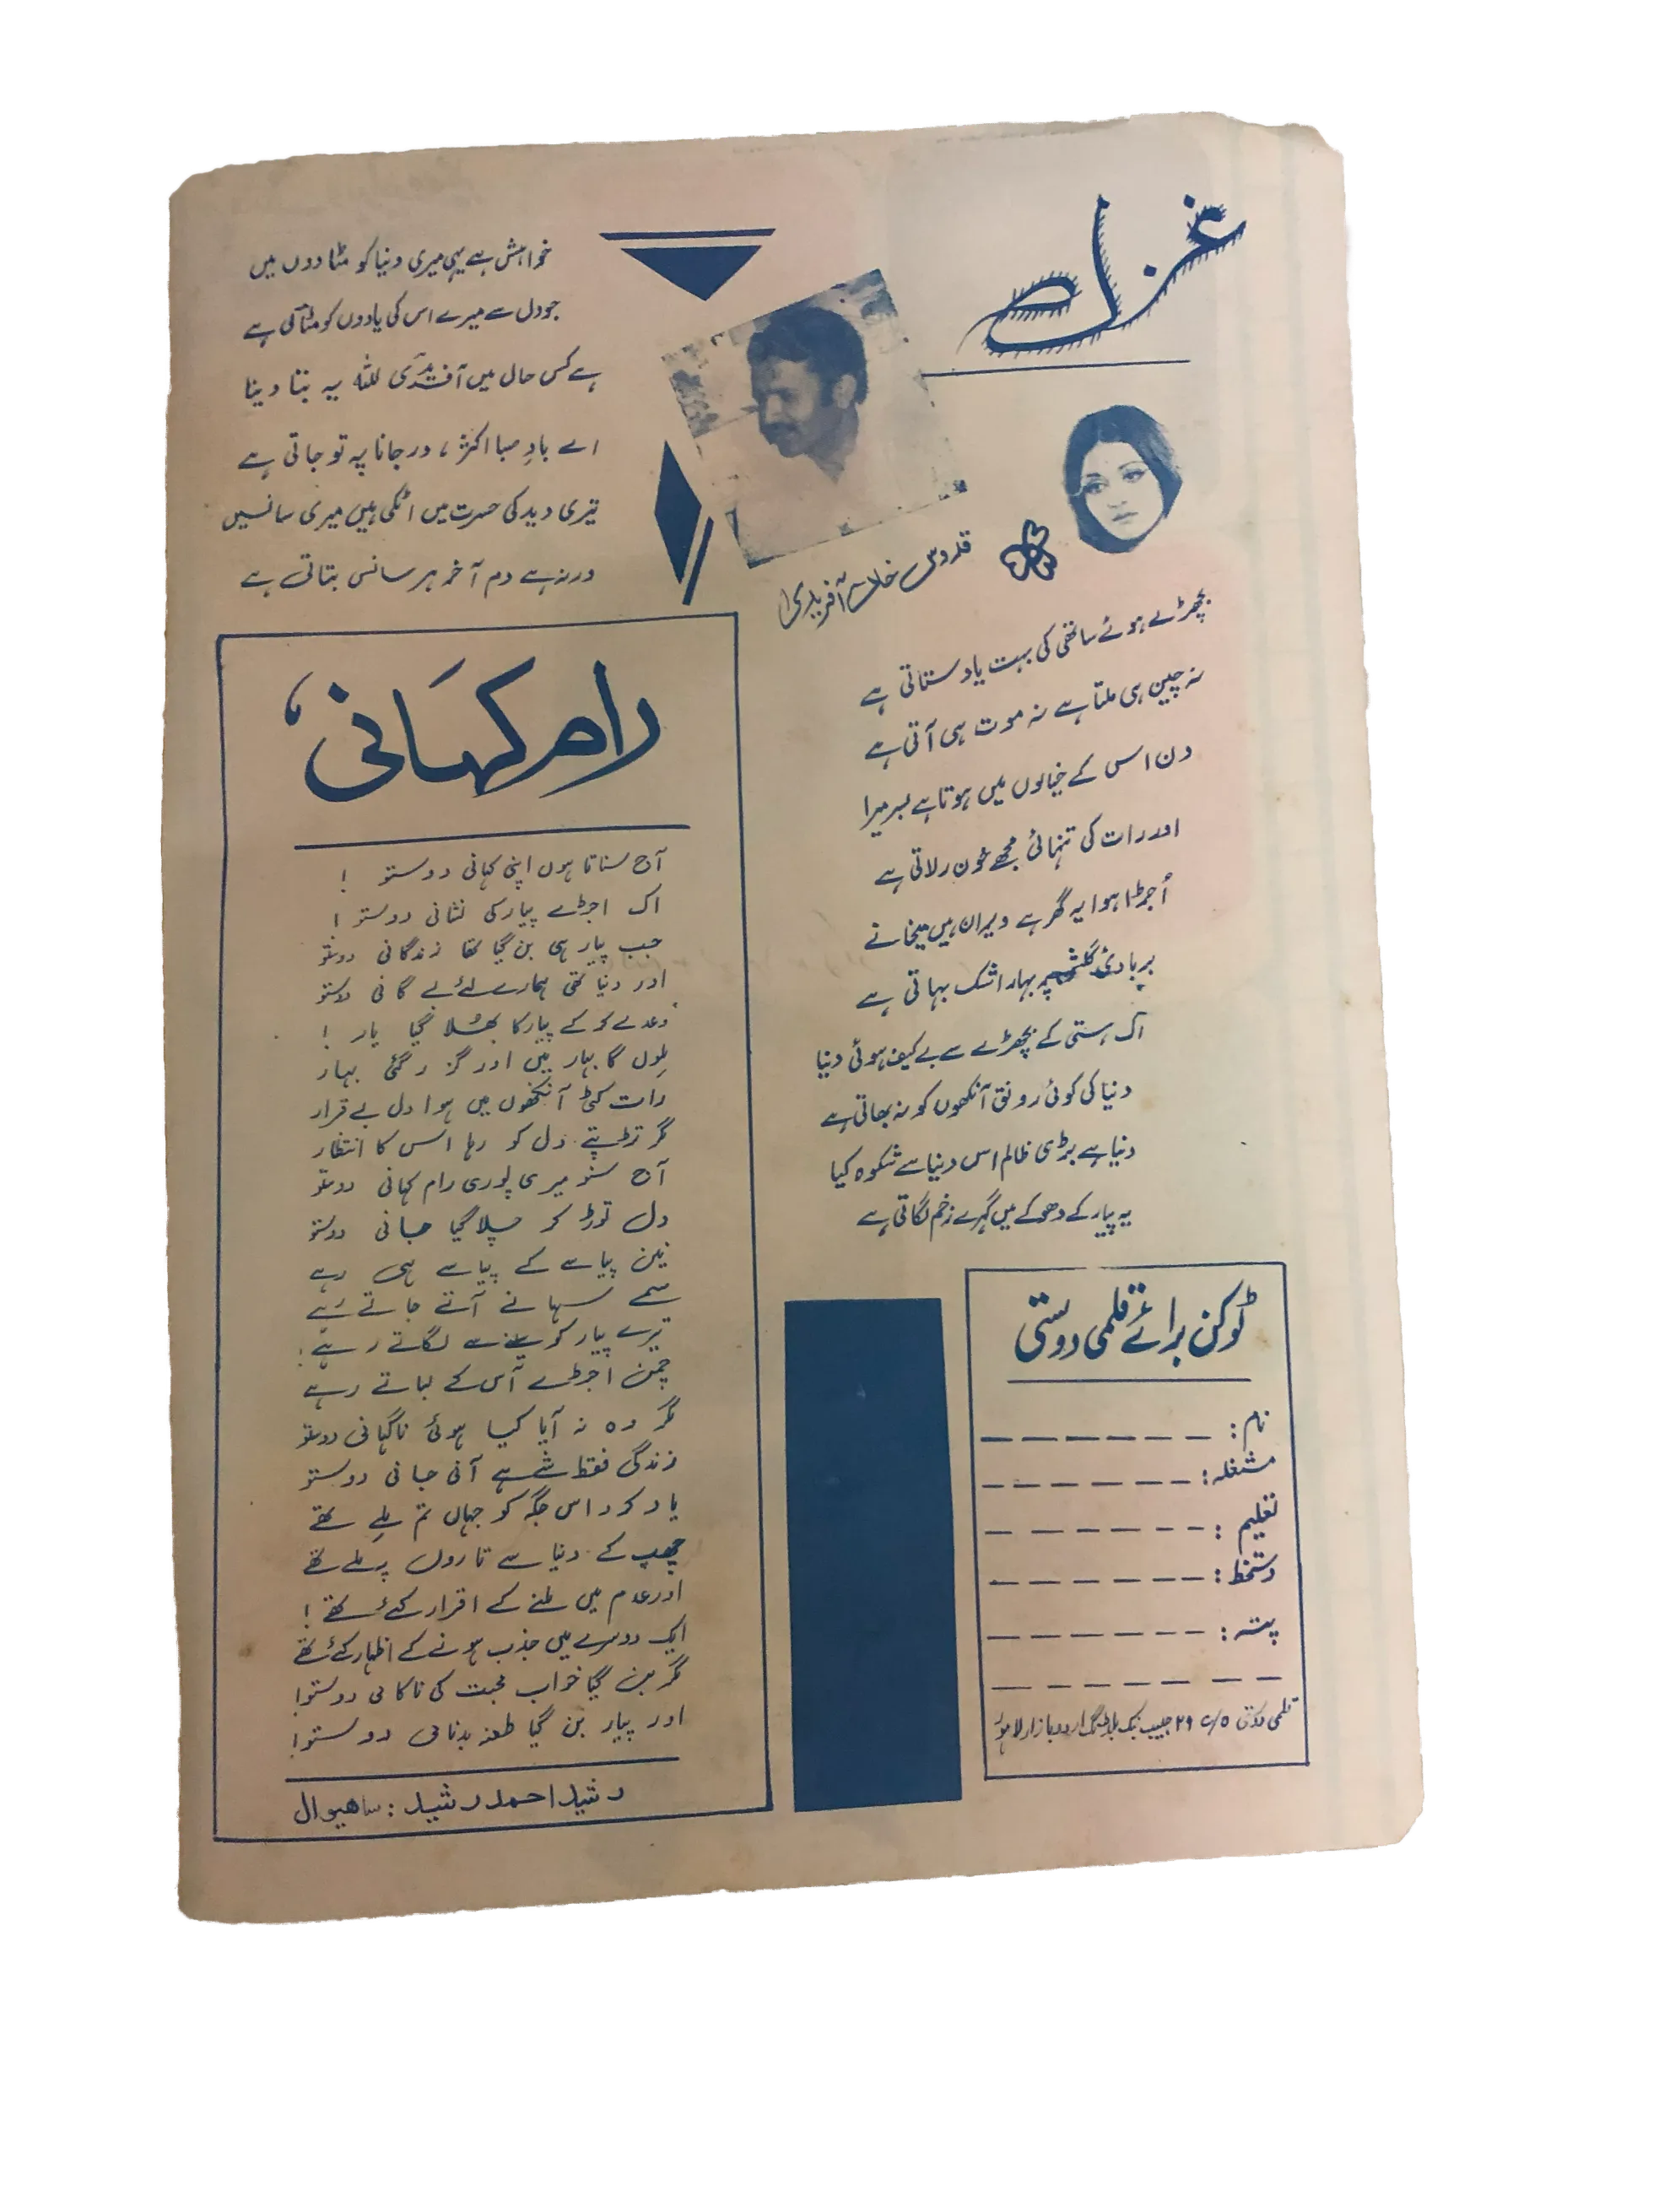 غزل
قدوس خان آفریدی
بچھڑے ہوئے ساتھی کی بہت یاد ستاتی ہے
نہ چین ہی ملتا ہے نہ موت ہی آتی ہے
دن اس کے خیالوں میں ہوتا ہے بسر میرا
اور رات کی تنہائی مجھے خون رلاتی ہے
اُجڑا ہوا یہ گھر ہے ویران ہیں میخانے
بربادئ گلشن پر بہار اشک بہاتی ہے
اک ہستی کے بچھڑے سے بے کیف ہوئی دنیا
دنیا کی کوئی رونق آنکھوں کو نہ بھاتی ہے
دنیا ہے بڑی ظالم اس دنیا سے شکوہ کیا
یہ پیار کے دھوکے میں گہرے زخم لگاتی ہے
خواہش ہے یہی میری دنیا کو مٹا دوں میں
جو دل سے میرے اس کی یادوں کو مٹاتی ہے
ہے کس حال میں آفریدی للہ یہ بتا دینا
اے بادِ صبا اکثر، در جانا پہ تو جاتی ہے
تیری دید کی حسرت میں اٹکی ہیں میری سانسیں
ورنہ ہے دم آخر ہر سانس بتاتی ہے
رام کہانی
آج سناتا ہوں اپنی کہانی دوستو !
اک اجڑے پیار کی نشانی دوستو !
جب پیار ہی بن گیا تھا زندگانی دوستو
اور دنیا تھی ہمارے لئے بے گانی دوستو
وعدے کر کے پیار کا بھُلا گیا یار !
ملوں گا بہار میں اور گزر گئی بہار
رات کٹی آنکھوں میں ہوا دل بے قرار
مگر تڑپتے دل کو رہا اس کا انتظار
آج سنو میری پوری رام کہانی دوستو
دل توڑ کر چلا گیا جانی دوستو
نین پیاسے کے پیاسے ہی رہے
سمے سہانے آتے جاتے رہے
تیرے پیار کو سینے سے لگاتے رہے !
چمن اجڑے آس کے بساتے رہے
مگر وہ نہ آیا کیا ہوئی ناگہانی دوستو
زندگی فقط شے ہے آنی جانی دوستو
یاد کرو اس جگہ کو جہاں تم ملے تھے
چھپ کے دنیا سے تاروں پہ ملے تھے
اور عدم میں ملنے کے اقرار کئے تھے !
ایک دوسرے میں جذب ہونے کے اظہار کئے تھے
مگر بن گیا خواب محبت کی ناکامی دوستو!
اور پیار بن گیا طعنہ بدنامی دوستو!
رشید احمد رشید : ساھیوال
ٹوکن برائے قلمی دوستی
نام :
مشغلہ :
تعلیم :
دستخط :
پتہ :
قلمی دوستی ۲۹ حبیب بنک بلڈنگ اردو بازار لاہور